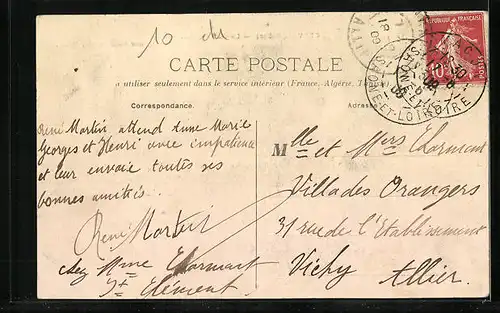 10
CARTE POSTALE
a utiliser seulement dans le service intérieur (France, Algérie,
Correspondance.
René Martin attend Anne Marie
Georges et Henri avec impatience
et leur envoie toutes ses
bonnes amitiés
René Martin
chez Mme Charmant
St Clément
Mlle et Mers Charmant
Villa des Orangers
31 rue de l'Etablissement
Vichy Allier.
ET-LOIRE
10
POSTES